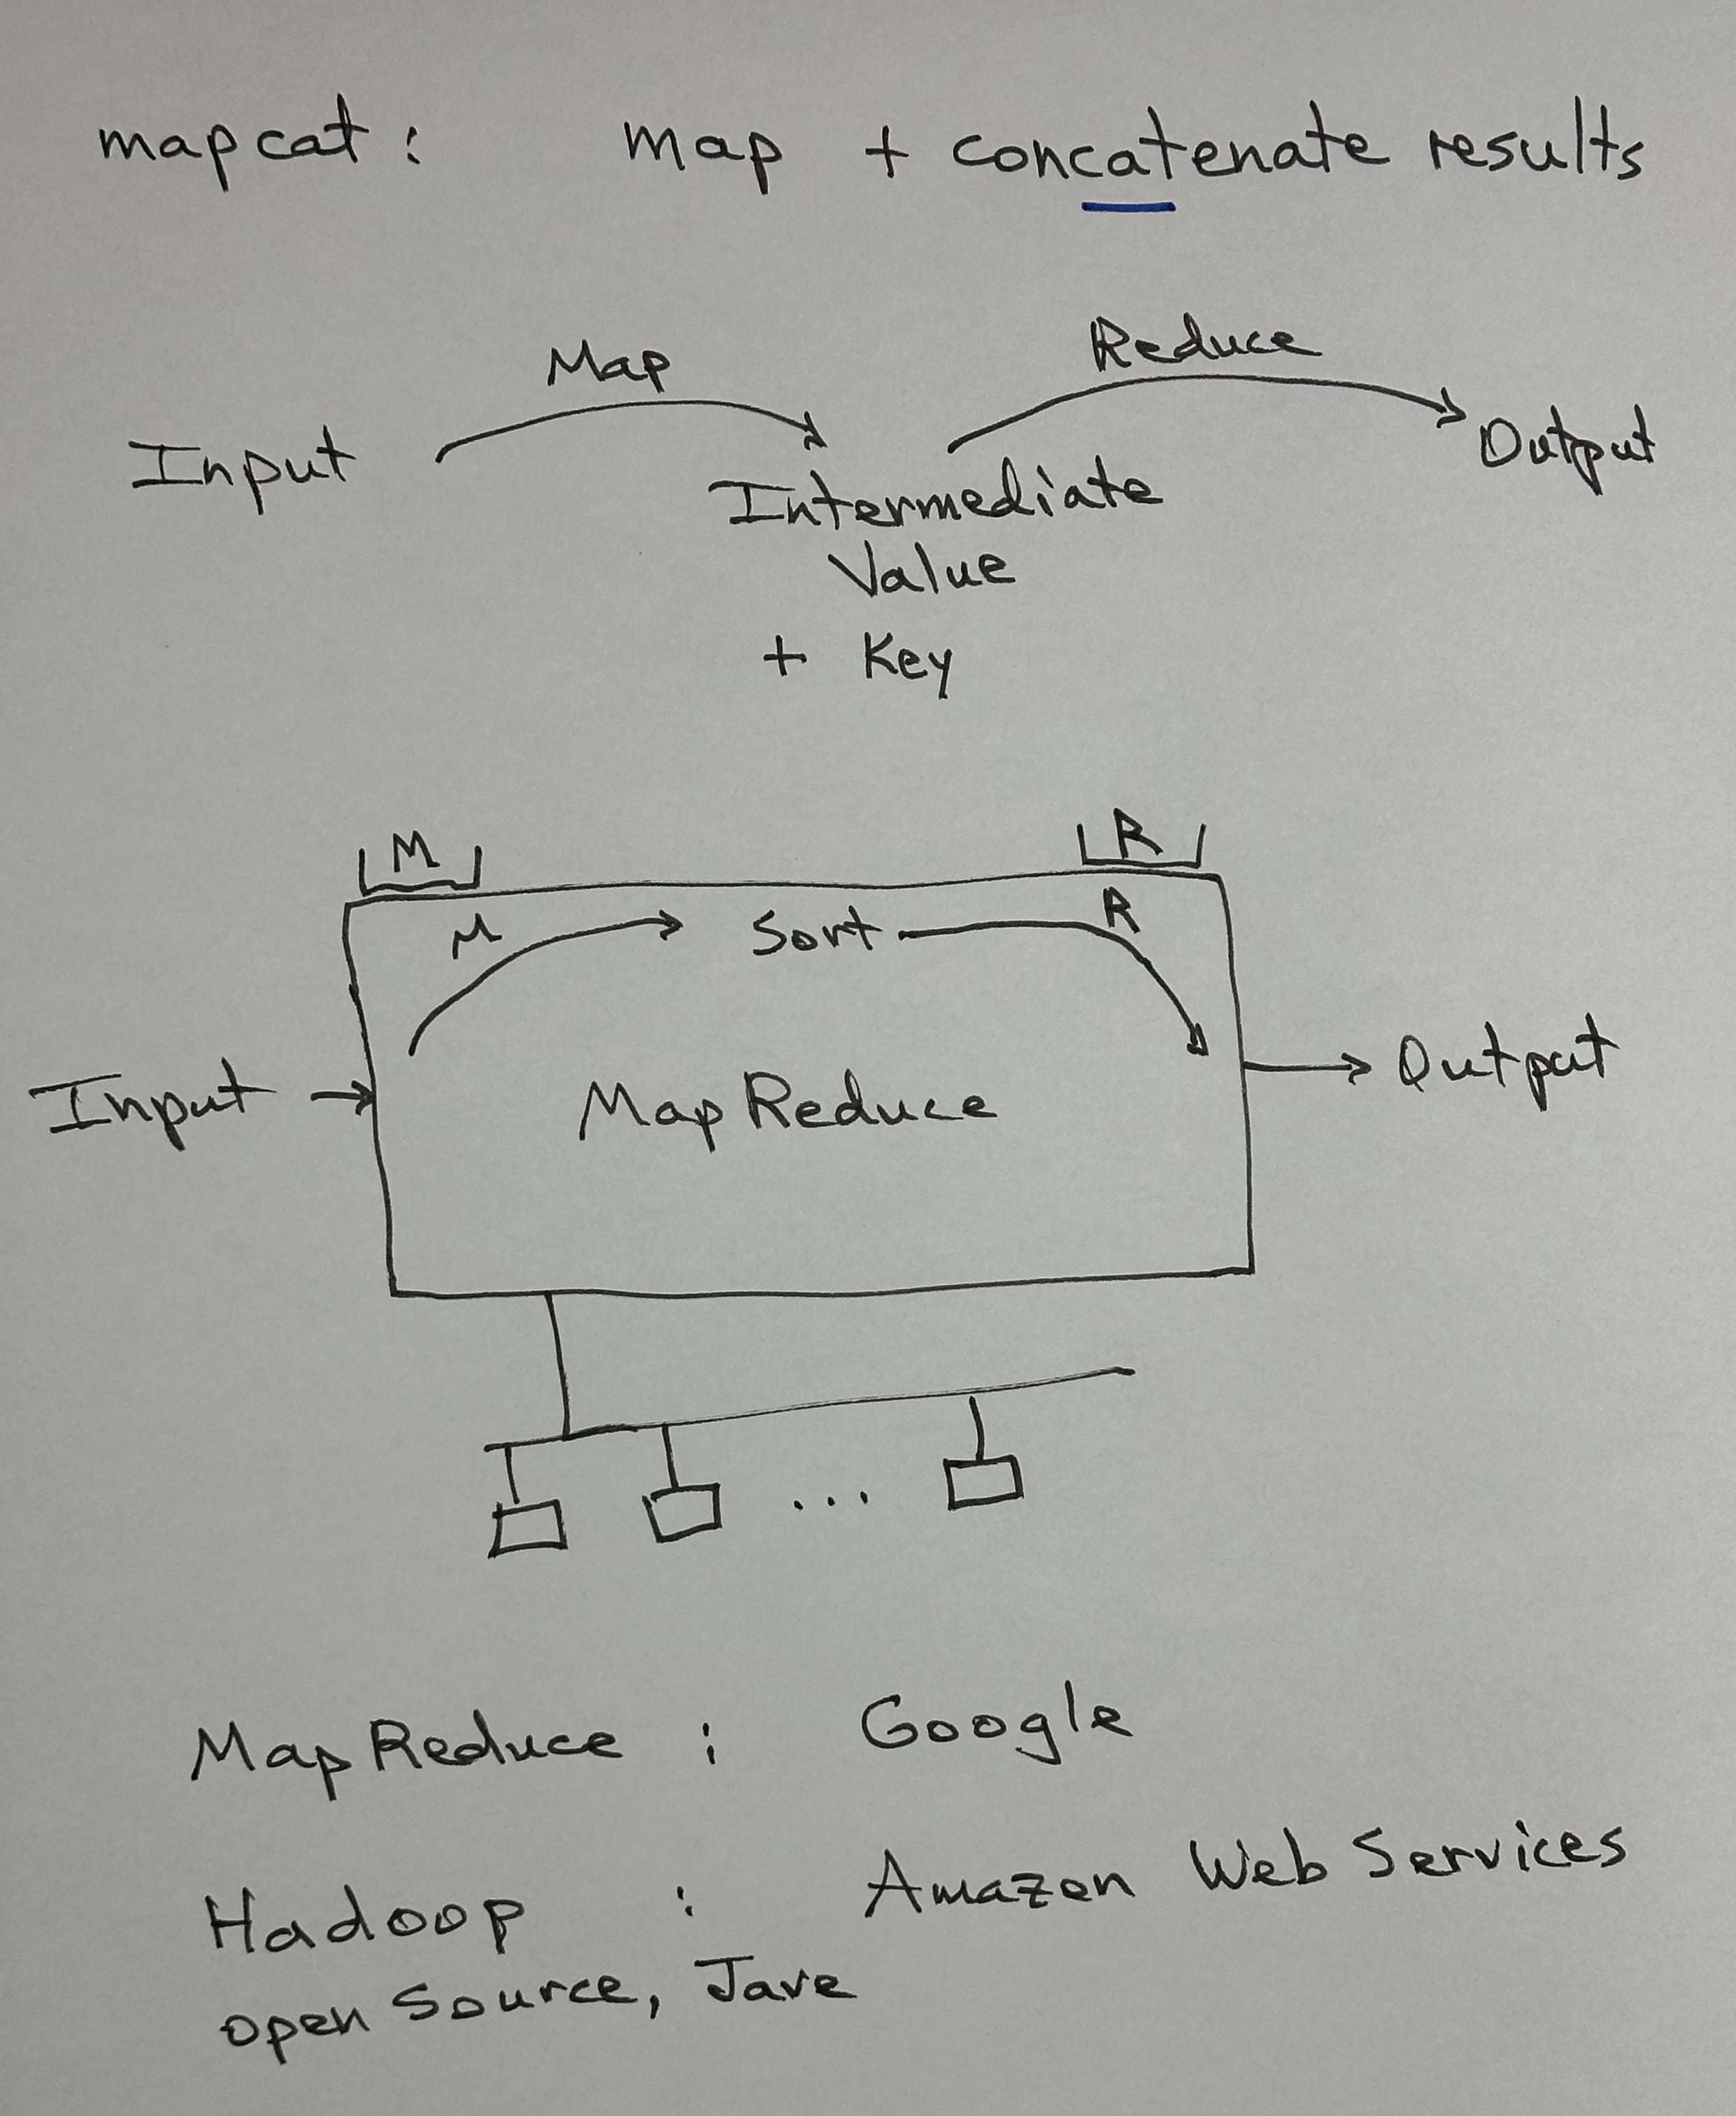 mapcat : map + concatenate results
Map
Reduce
Input
Output
Intermediate
Value
+ Key
M
R
M
Sort
R
Input
MapReduce
Output
...
MapReduce : Google
Hadoop : Amazon Web Services
open source, Jave